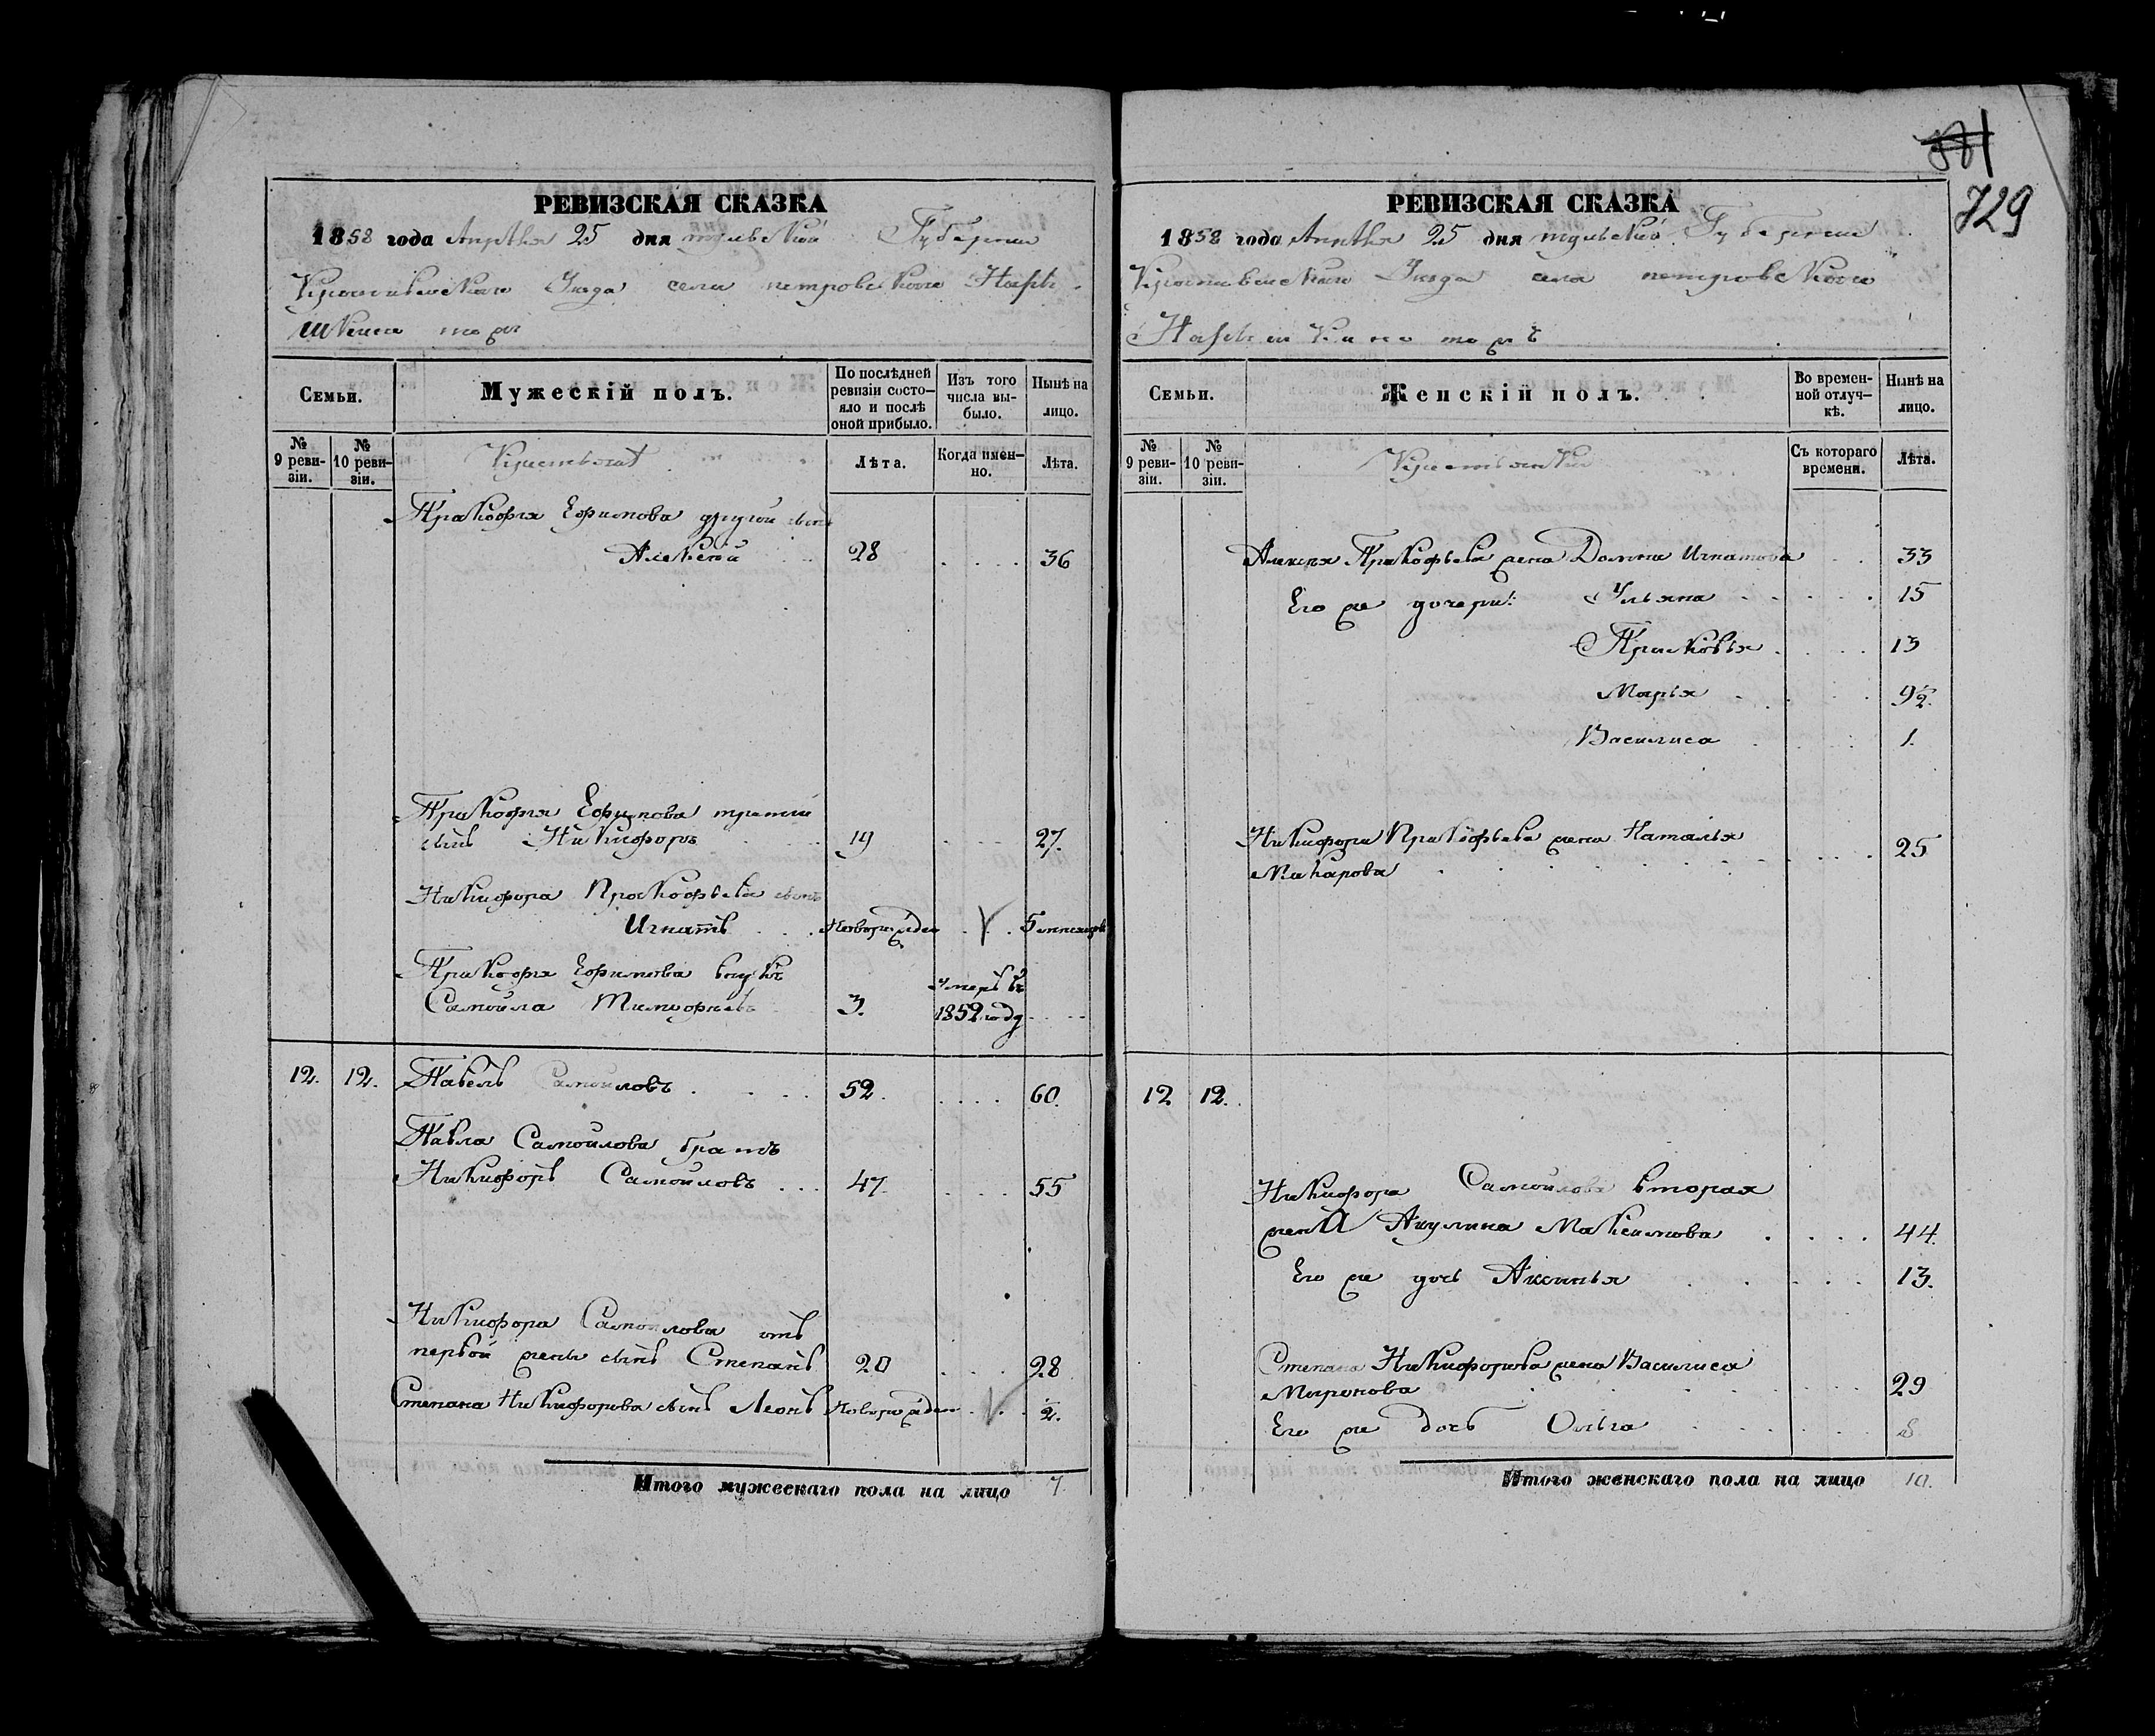 729
РЕВИЗСКАЯ СКАЗКА
1858 года Апрѣля 25 дня тульской Губернии
Крапивенскаго Уезда села петровскаго
тожъ
Семьи.
Мужескій полъ.
По послѣдней ревизіи состо-
яло и послѣ
оной прибыло.
Изъ того
числа вы-
было.
Нынѣ на
лицо.
№
9 реви-
зіи.
№
10 реви-
зіи.
Крестьянъ
Лѣта.
Когда имен-
но.
Лѣта.
Пракофья Ефимова другой сынъ
Алексей . . 28 . . . . 36
Пракофья Ефимова третий
сынъ Никифоръ . . . 19 . . . 27.
Никифора Прокофьева сынъ
Игнатъ . . . Новорожден . . 5 месяцовъ
Пракофья Ефимова внукъ
Самойла Тимофеевъ 3. умеръ въ
1852 году . . . .
12. 12. Павелъ Самойловъ . . . . 52. . . . . 60.
Павла Самойлова братъ
Никифоръ Самойловъ . . . 47. . . . . 55
Никифора Самойлова отъ
первой жены сынъ Степанъ 20 . . . 28
Степана Никифорова сынъ Леонъ Новорожден . . . 2.
Итого мужескаго пола на лицо 7.
РЕВИЗСКАЯ СКАЗКА
1858 года Апрѣля 25 дня тульской Губернии
Крапивенскаго Уезда села петровскаго
тожъ
Семьи.
Женскій полъ.
Во времен-
ной отлуч-
кѣ.
Нынѣ на
лицо.
№
9 реви-
зіи.
№
10 реви-
зіи.
Крестьянки
Съ котораго
времени.
Лѣта.
Алексея Пракофьева жена Домна Игнатова . . 33
Его же дочери: Ульяна . . . . . 15
Прасковья . . . . 13
Марья . . . . 9½
Василиса . . . . 1.
Никифора Пракофьева жена Наталья
Макарова . . . . . . 25
12 12.
Никифора Самойлова вторая
жена Акулина Максимова . . . . 44.
Его же дочь Аксинья . . . . . 13.
Степана Никифорова жена Василиса
Миронова . . . . . 29
Его же дочь Ольга . . . . . . 8
Итого женскаго пола на лицо 10.